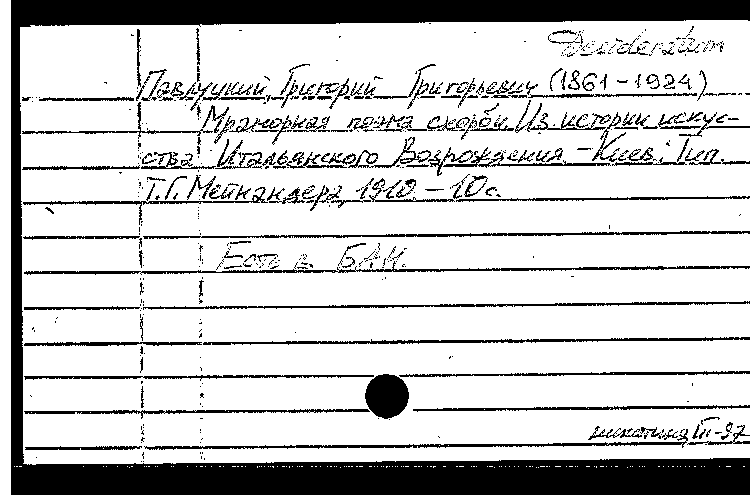 Desideratum
Павлуцкий, Григорий Григорьевич (1861-1924)
Мраморная поэма скорби. Из истории искус-
ства Итальянского Возрождения. - Киев: Тип.
Т.Г. Мейнандера, 1910. - 10 с.
Есть в БАН.
III-97